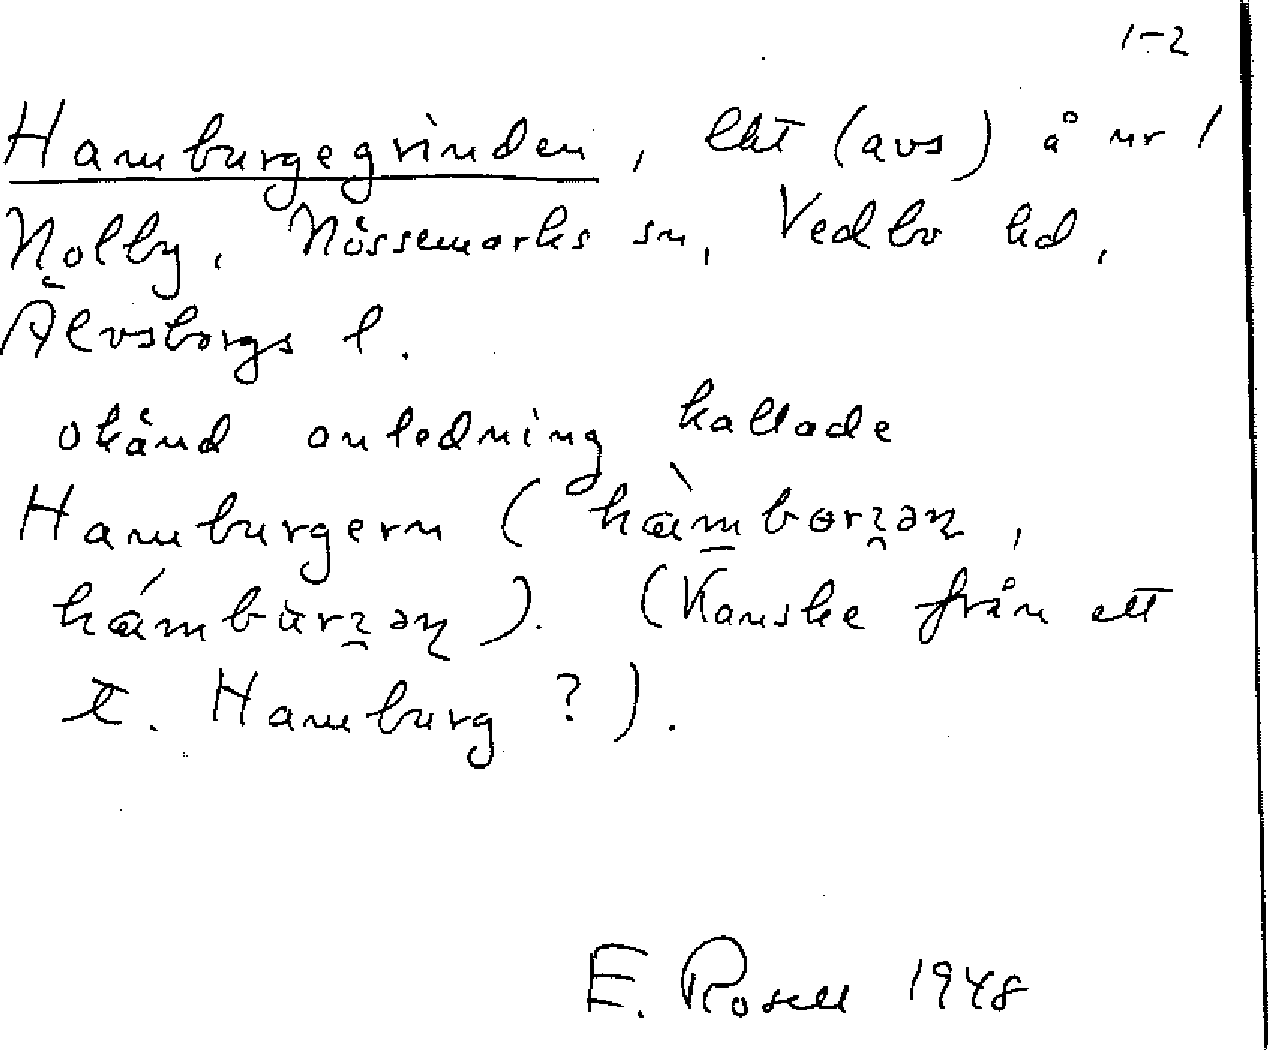 1-2
Hamburgegrinden, lht (avs) å nr 1
Nolby, Nössemarks sn, Vedbo hd,
Älvsborgs l.
okänd anledning kallade
Hamburgern (
). (Kanske från ett
t. Hamburg ?).
E. Rosell 1948